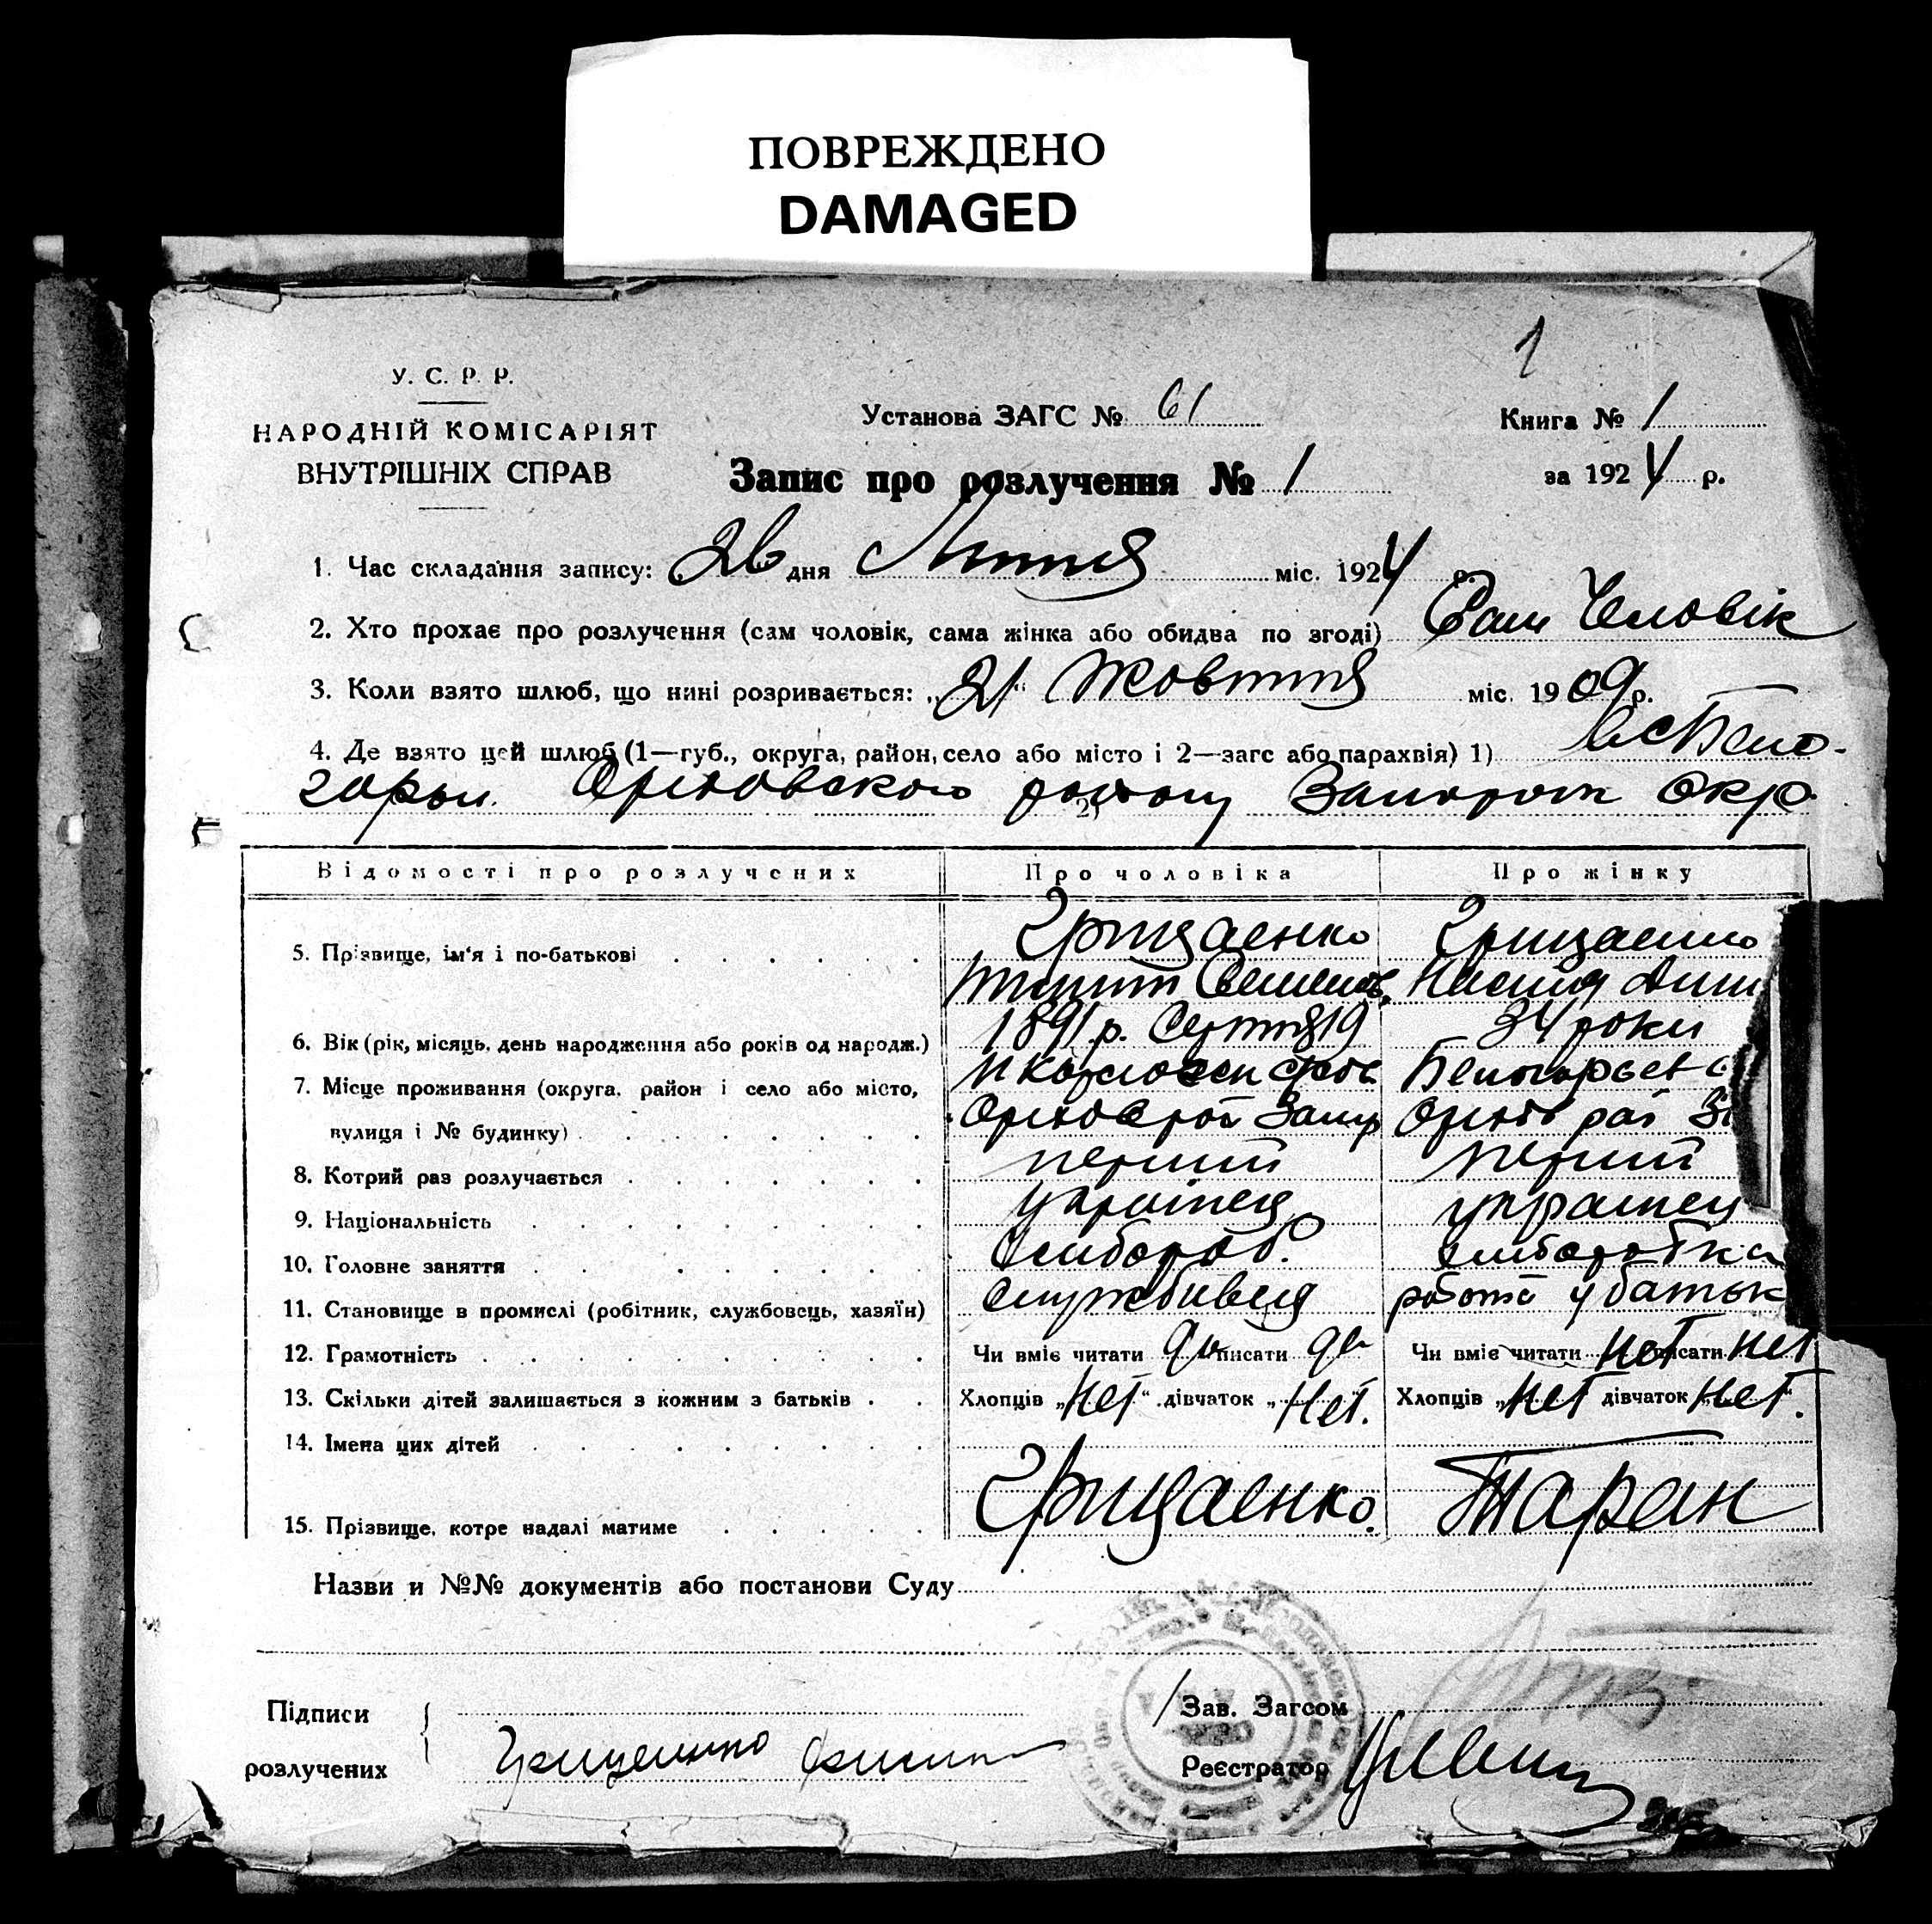 ПОВРЕЖДЕНО
DAMAGED
1
У. С. Р. Р.
НАРОДНІЙ КОМІСАРІЯТ
ВНУТРІШНІХ СПРАВ
Установа ЗАГС № 61
Книга № 1
Запис про розлучення № 1
за 1924 р.
1. Час складання запису: 26 дня Липня міс. 1924 р.
2. Хто прохає про розлучення (сам чоловік, сама жінка або обидва по згоді) Сам Чоловік
3. Коли взято шлюб, що нині розривається: „21“ Жовтня міс. 1909 р.
4. Де взято цей шлюб (1—губ., округа, район, село або місто і 2—загс або парахвія) 1) в с Бело-
горьи. Ореховского району Запорож Окр.
2)
Відомості про розлучених Про чоловіка Про жінку
5. Прізвище, ім‘я і по-батькові Грищаенко Грищаенко
Семенов,
6. Вік (рік, місяць, день народження або років од народж.) 1891 р. Серпня 19 34 роки
7. Місце проживання (округа, район і село або місто,
вулиця і № будинку) Орехов рай Запор Орехов рай
8. Котрий раз розлучається перший перший
9. Національність українец українец
10. Головне заняття хлибороб. хлиборобка
11. Становище в промислі (робітник, службовець, хазяїн) робота у батьк
12. Грамотність Чи вміє читати да писати да Чи вміє читати нет писати нет
13. Скільки дітей залишається з кожним з батьків Хлопців „нет“ дівчаток „нет. Хлопців „нет дівчаток нет.
14. Імена цих дітей
15. Прізвище, котре надалі матиме Грищаенко. Таран
Назви и №№ документів або постанови Суду
Підписи
розлучених
Зав. Загсом
Реєстратор